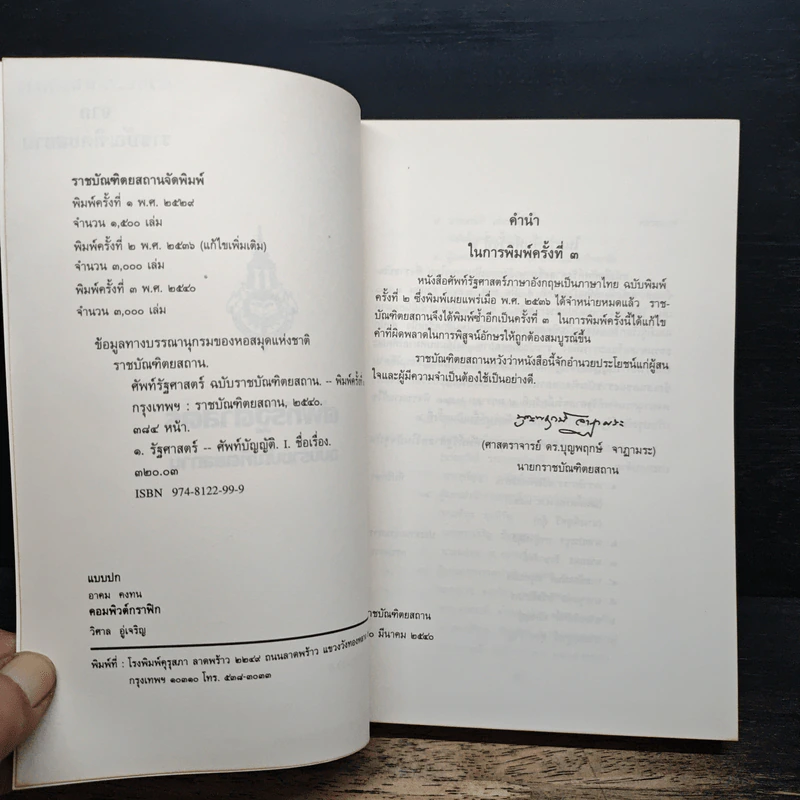 ราชบัณฑิตยสถานจัดพิมพ์
พิมพ์ครั้งที่ ๑ พ.ศ. ๒๕๒๙
จำนวน ๑,๕๐๐ เล่ม
พิมพ์ครั้งที่ ๒ พ.ศ. ๒๕๓๖ (แก้ไขเพิ่มเติม)
จำนวน ๓,๐๐๐ เล่ม
พิมพ์ครั้งที่ ๓ พ.ศ. ๒๕๔๐
จำนวน ๓,๐๐๐ เล่ม
ข้อมูลทางบรรณานุกรมของหอสมุดแห่งชาติ
ราชบัณฑิตยสถาน.
ศัพท์รัฐศาสตร์ ฉบับราชบัณฑิตยสถาน. -- พิมพ์ครั้งที่
กรุงเทพฯ : ราชบัณฑิตยสถาน, ๒๕๔๐.
๓๘๔ หน้า.
๑. รัฐศาสตร์ -- ศัพท์บัญญัติ. I. ชื่อเรื่อง.
๓๒๐.๐๓
ISBN 974-8122-99-9
แบบปก
อาคม คงทน
คอมพิวต์กราฟิก
วิศาล อู่เจริญ
พิมพ์ที่ : โรงพิมพ์คุรุสภา ลาดพร้าว ๒๒๔๙ ถนนลาดพร้าว แขวงวังทองหลาง
กรุงเทพฯ ๑๐๓๑๐ โทร. ๕๓๘-๓๐๓๓
คำนำ
ในการพิมพ์ครั้งที่ ๓
หนังสือศัพท์รัฐศาสตร์ภาษาอังกฤษเป็นภาษาไทย ฉบับพิมพ์
ครั้งที่ ๒ ซึ่งพิมพ์เผยแพร่เมื่อ พ.ศ. ๒๕๓๖ ได้จำหน่ายหมดแล้ว ราช-
บัณฑิตยสถานจึงได้พิมพ์ซ้ำอีกเป็นครั้งที่ ๓ ในการพิมพ์ครั้งนี้ได้แก้ไข
คำที่ผิดพลาดในการพิสูจน์อักษรให้ถูกต้องสมบูรณ์ขึ้น
ราชบัณฑิตยสถานหวังว่าหนังสือนี้จักอำนวยประโยชน์แก่ผู้สน
ใจและผู้มีความจำเป็นต้องใช้เป็นอย่างดี.
(ศาสตราจารย์ ดร.บุญพฤกษ์ จาฏามระ)
นายกราชบัณฑิตยสถาน
าชบัณฑิตยสถาน
๐ มีนาคม ๒๕๔๐